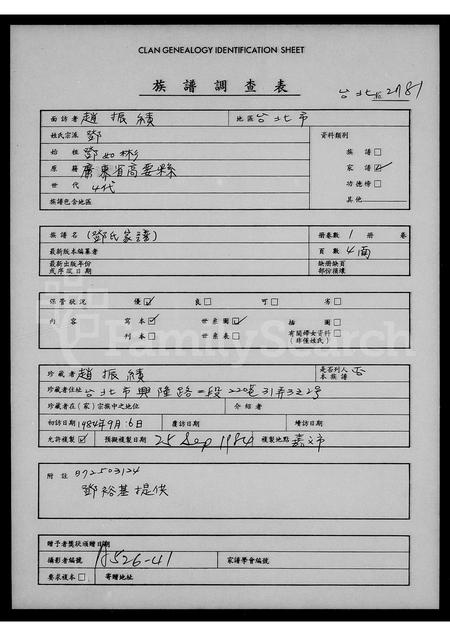 CLAN GENEALOGY IDENTIFICATION SHEET
族譜調查表
台北 2781
面訪者 趙振績 地區 台北市
姓氏宗派 鄧 資料類別
始祖 鄧如彬 族譜 □
原籍 廣東省高要縣 家譜 ☑
世代 4代 功德榜 □
族譜包含地區 其他
族譜名 (鄧氏家譜) 冊卷數 1 冊 卷
最新版本編纂者 頁數 4面
最新出版年份 缺冊缺頁
或序跋日期 部份損壞
保管狀況 優 ☑ 良 □ 可 □ 劣 □
內容 寫本 ☑ 世系圖 ☑ 插圖 □
刊本 □ 世系表 □ 有關婦女資料 □
(非僅姓氏)
珍藏者 趙振績 是否列入 否
本族譜
珍藏者住址 台北市興隆路一段220巷31弄3之2号
珍藏者在(家)宗族中之地位 介紹者
初訪日期 1984年9月6日 覆訪日期 增訪日期
允許複製 ☑ 預擬複製日期 25 Sep 1984 複製地點 嘉义市
附註 072503124
鄧裕基提供
贈予者獎狀頒贈日期
攝影者編號 A526-41 家譜學會編號
要求複本 □ 寄贈地址
FamilySearch